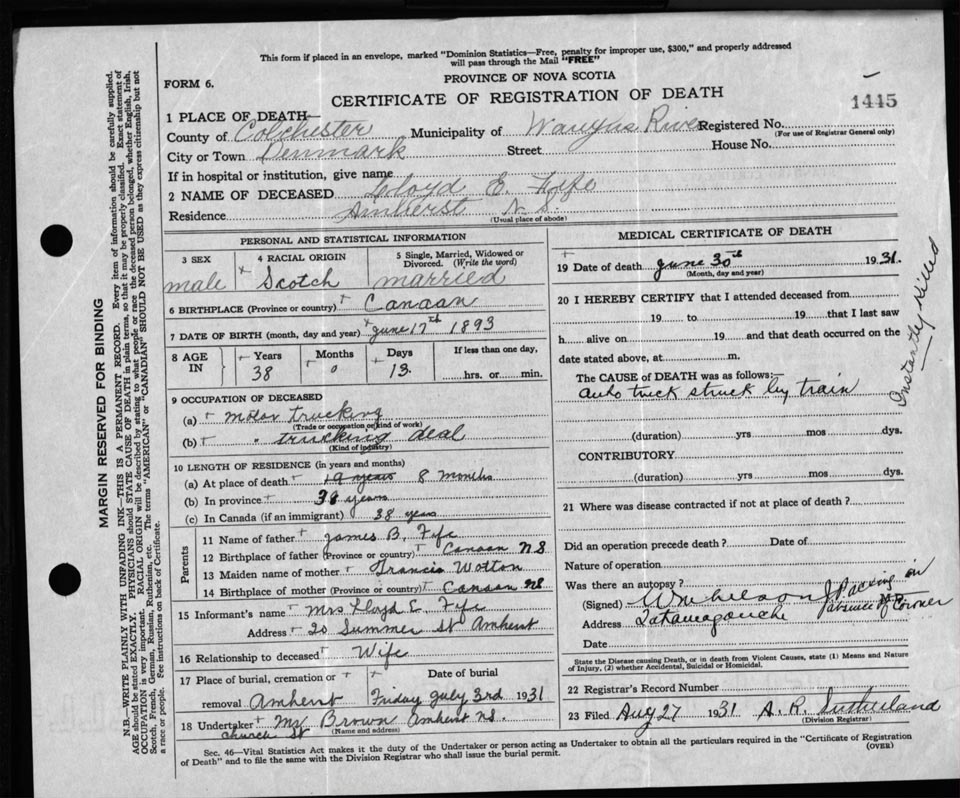 This form if placed in an envelope, marked "Dominion Statistics—Free, penalty for improper use, $300," and properly addressed
will pass through the Mail "FREE"
FORM 6.
PROVINCE OF NOVA SCOTIA
CERTIFICATE OF REGISTRATION OF DEATH
1445
1 PLACE OF DEATH—
County of Colchester Municipality of River Registered No.
(For use of Registrar General only)
City or Town Denmark Street House No.
If in hospital or institution, give name
2 NAME OF DECEASED Lloyd E. Fyfe
Residence Amherst N.S.
(Usual place of abode)
PERSONAL AND STATISTICAL INFORMATION
3 SEX 4 RACIAL ORIGIN 5 Single, Married, Widowed or
Divorced. (Write the word)
male Scotch married
6 BIRTHPLACE (Province or country) Canaan
7 DATE OF BIRTH (month, day and year) June 17th 1893
8 AGE IN Years Months Days If less than one day,
38 0 13 hrs. or min.
9 OCCUPATION OF DECEASED
(a) motor trucking
(Trade or occupation or kind of work)
(b) " trucking deal
(Kind of industry)
10 LENGTH OF RESIDENCE (in years and months)
(a) At place of death 19 years 8 months
(b) In province 38 years
(c) In Canada (if an immigrant) 38 years
Parents
11 Name of father James B. Fyfe
12 Birthplace of father (Province or country) Canaan NS
13 Maiden name of mother Francis Wotton
14 Birthplace of mother (Province or country) Canaan NS
15 Informant's name Mrs Lloyd E. Fyfe
Address 20 Summer St Amherst
16 Relationship to deceased Wife
17 Place of burial, cremation or Date of burial
removal Amherst Friday July 3rd 1931
18 Undertaker Mr Brown Amherst NS.
church St (Name and address)
MEDICAL CERTIFICATE OF DEATH
19 Date of death June 30th 1931.
(Month, day and year)
20 I HEREBY CERTIFY that I attended deceased from
19 to 19 that I last saw
h alive on 19 and that death occurred on the
date stated above, at m.
The CAUSE of DEATH was as follows:—
auto truck struck by train
Instantly Killed
(duration) yrs mos dys.
CONTRIBUTORY
(duration) yrs mos dys.
21 Where was disease contracted if not at place of death?
Did an operation precede death? Date of
Nature of operation
Was there an autopsy?
(Signed) in
Address Tatamagouche absence of Coroner
Date
State the Disease causing Death, or in death from Violent Causes, state (1) Means and Nature
of Injury, (2) whether Accidental, Suicidal or Homicidal.
22 Registrar's Record Number
23 Filed Aug 27 1931 A. R. Sutherland
(Division Registrar)
Sec. 46—Vital Statistics Act makes it the duty of the Undertaker or person acting as Undertaker to obtain all the particulars required in the "Certificate of Registration
of Death" and to file the same with the Division Registrar who shall issue the burial permit.
(OVER)
MARGIN RESERVED FOR BINDING
N.B.—WRITE PLAINLY WITH UNFADING INK—THIS IS A PERMANENT RECORD. Every item of information should be carefully supplied.
AGE should be stated EXACTLY. PHYSICIANS should STATE CAUSE OF DEATH in plain terms, so that it may be properly classified. Exact statement of
OCCUPATION is very important. RACIAL ORIGIN will be described by stating to what people or race the deceased person belonged, whether English, Irish,
Scotch, French, German, Russian, Ruthenian, etc. The terms "AMERICAN" or "CANADIAN" SHOULD NOT BE USED as they express citizenship but not
a race or people. See instructions on back of Certificate.